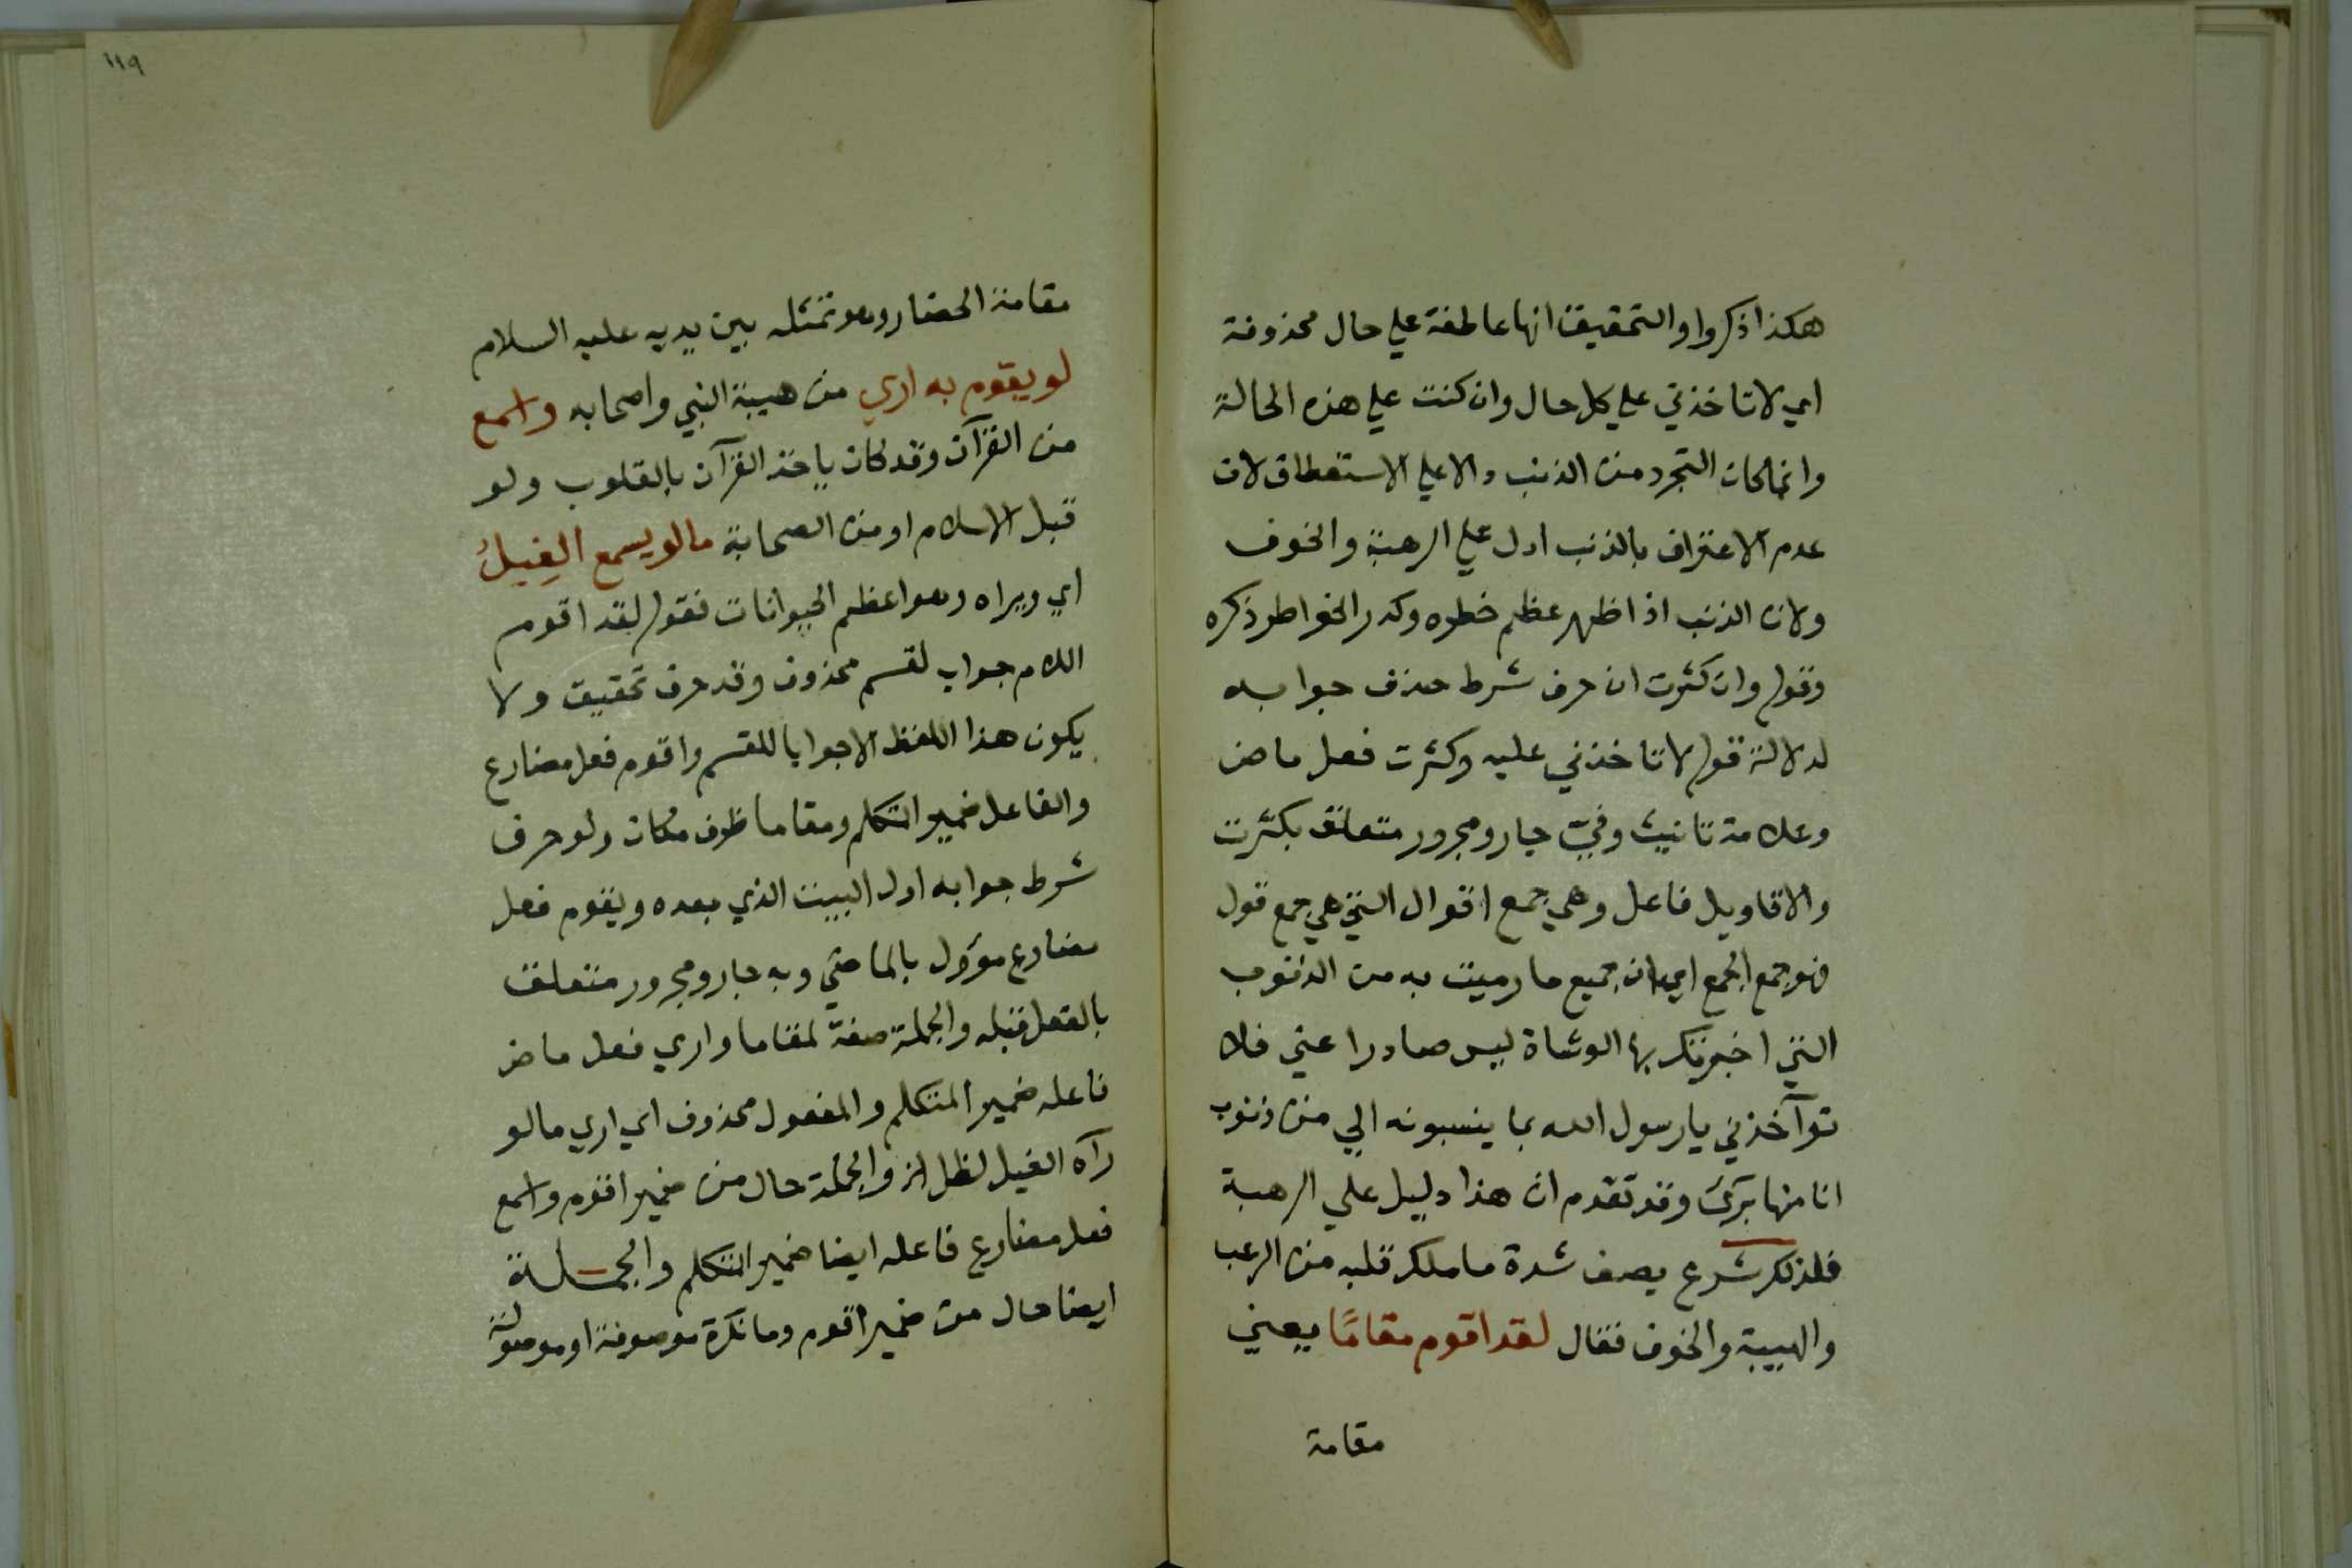 هكذا ذكروا والتحقيق انها عاطفة علي حال محذوفة
اي لا تاخذني علي كل حال وان كنت علي هذه الحالة
وانما كان التجرد من الذنب والاعلي الاستعطاف لان
عدم الاعتراف بالذنب ادل علي الرهبة والخوف
ولان الذنب اذا ظهر عظم خطره وكدر الخواطر ذكره
وقوله وان كثرت ان حرف شرط حذف جوابه
لدلالة قوله لا تاخذني عليه وكثرت فعل ماض
وعلامة تانيث وفيّ جار ومجرور متعلق بكثرت
والاقاويل فاعل وهي جمع اقوال التي هي جمع قول
فهو جمع الجمع اي ان جميع ما رميت به من الذنوب
التي اخبرتك بها الوشاة ليس صادرا عني فلا
توآخذني يا رسول الله بما ينسبونه الي من ذنوب
انا منها برئ وقد تقدم ان هذا دليل علي الرهبة
فلذلك شرع يصف شدة ما ملك قلبه من الرعب
والهيبة والخوف فقال لقد اقوم مقامًا يعني
مقامة
١١٩
مقامة الحضار وهو تمثله بين يديه عليه السلام
لو يقوم به اري من هيبة النبي واصحابه واسمع
من القرآن وقد كان ياخذ القرآن بالقلوب ولو
قبل الاسلام او من الصحابة ما لو يسمع الفِيلُ
اي ويراه وهو اعظم الحيوانات فقوله لقد اقوم
اللام جواب لقسم محذوف وقد حرف تحقيق ولا
يكون هذا اللفظ الا جوابا للقسم واقوم فعل مضارع
والفاعل ضمير المتكلم ومقاما ظرف مكان ولو حرف
شرط جوابه اول البيت الذي بعده ويقوم فعل
مضارع مؤول بالماضي وبه جار ومجرور متعلق
بالفعل قبله والجملة صفة لمقاما واري فعل ماض
فاعله ضمير المتكلم والمفعول محذوف اي اري ما لو
رآه الفيل لظل الخ والجملة حال من ضمير اقوم واسمع
فعل مضارع فاعله ايضا ضمير المتكلم والجملة
ايضا حال من ضمير اقوم وما نكرة موصوفة او موصولة